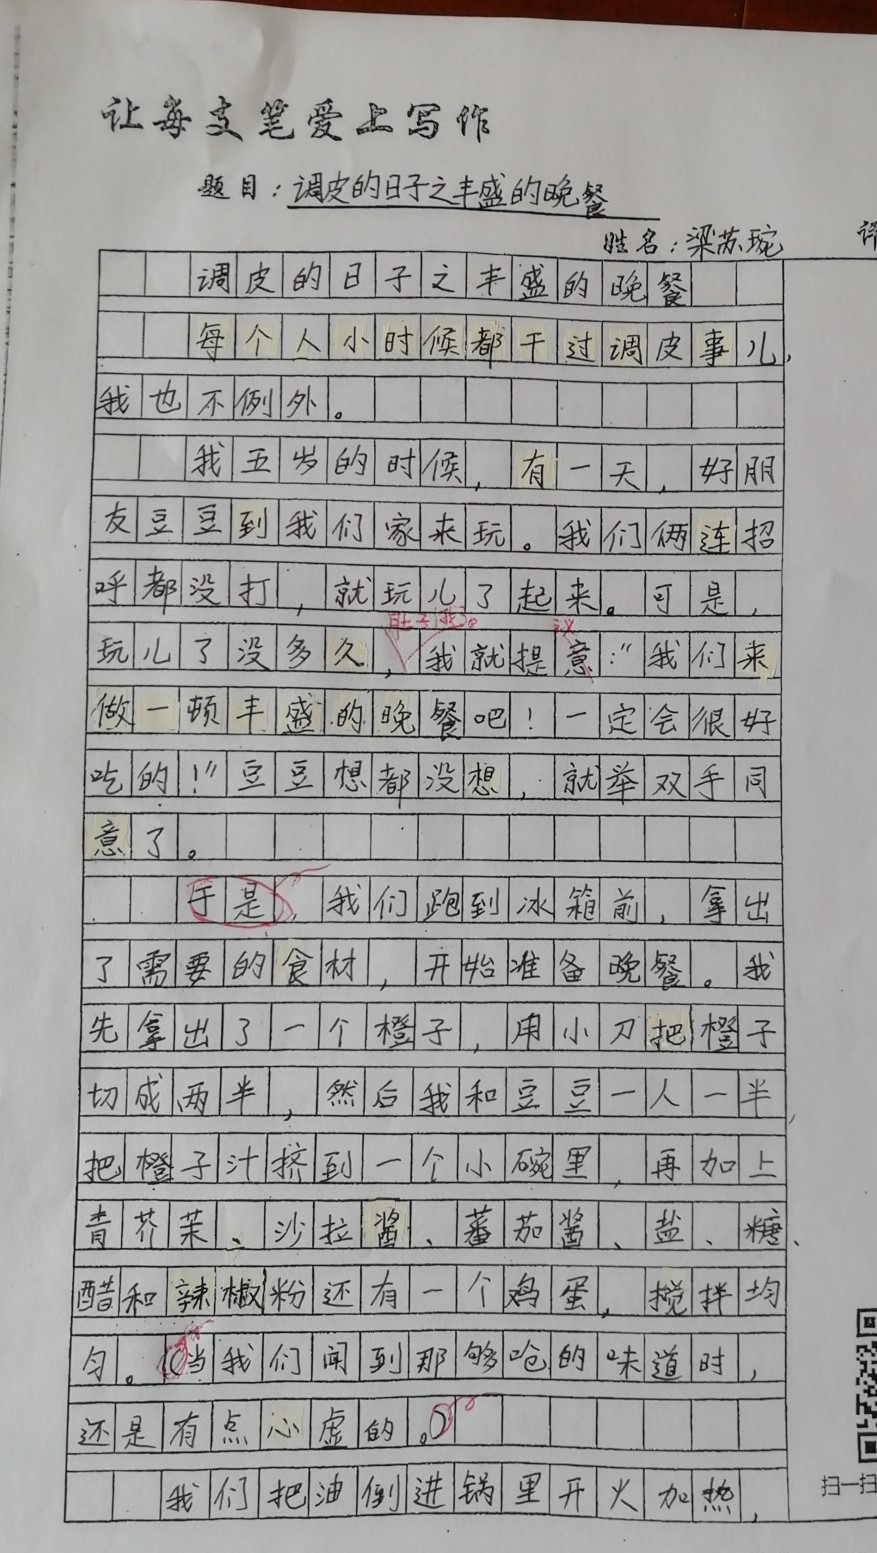 让每支笔爱上写作
题目：调皮的日子之丰盛的晚餐
姓名：梁苏琬
调皮的日子之丰盛的晚餐
每个人小时候都干过调皮事儿，
我也不例外。
我五岁的时候，有一天，好朋
友豆豆到我们家来玩。我们俩连招
呼都没打，就玩儿了起来。可是，
肚子饿。 议
玩儿了没多久，我就提意：“我们来
做一顿丰盛的晚餐吧！一定会很好
吃的！”豆豆想都没想，就举双手同
意了。
于是，我们跑到冰箱前，拿出
了需要的食材，开始准备晚餐。我
先拿出了一个橙子，用小刀把橙子
切成两半，然后我和豆豆一人一半，
把橙子汁挤到一个小碗里，再加上
青芥茉、沙拉酱、蕃茄酱、盐、糖、
醋和辣椒粉还有一个鸡蛋，搅拌均
匀。（当我们闻到那够呛的味道时，
还是有点心虚的。）
我们把油倒进锅里开火加热，
扫一扫